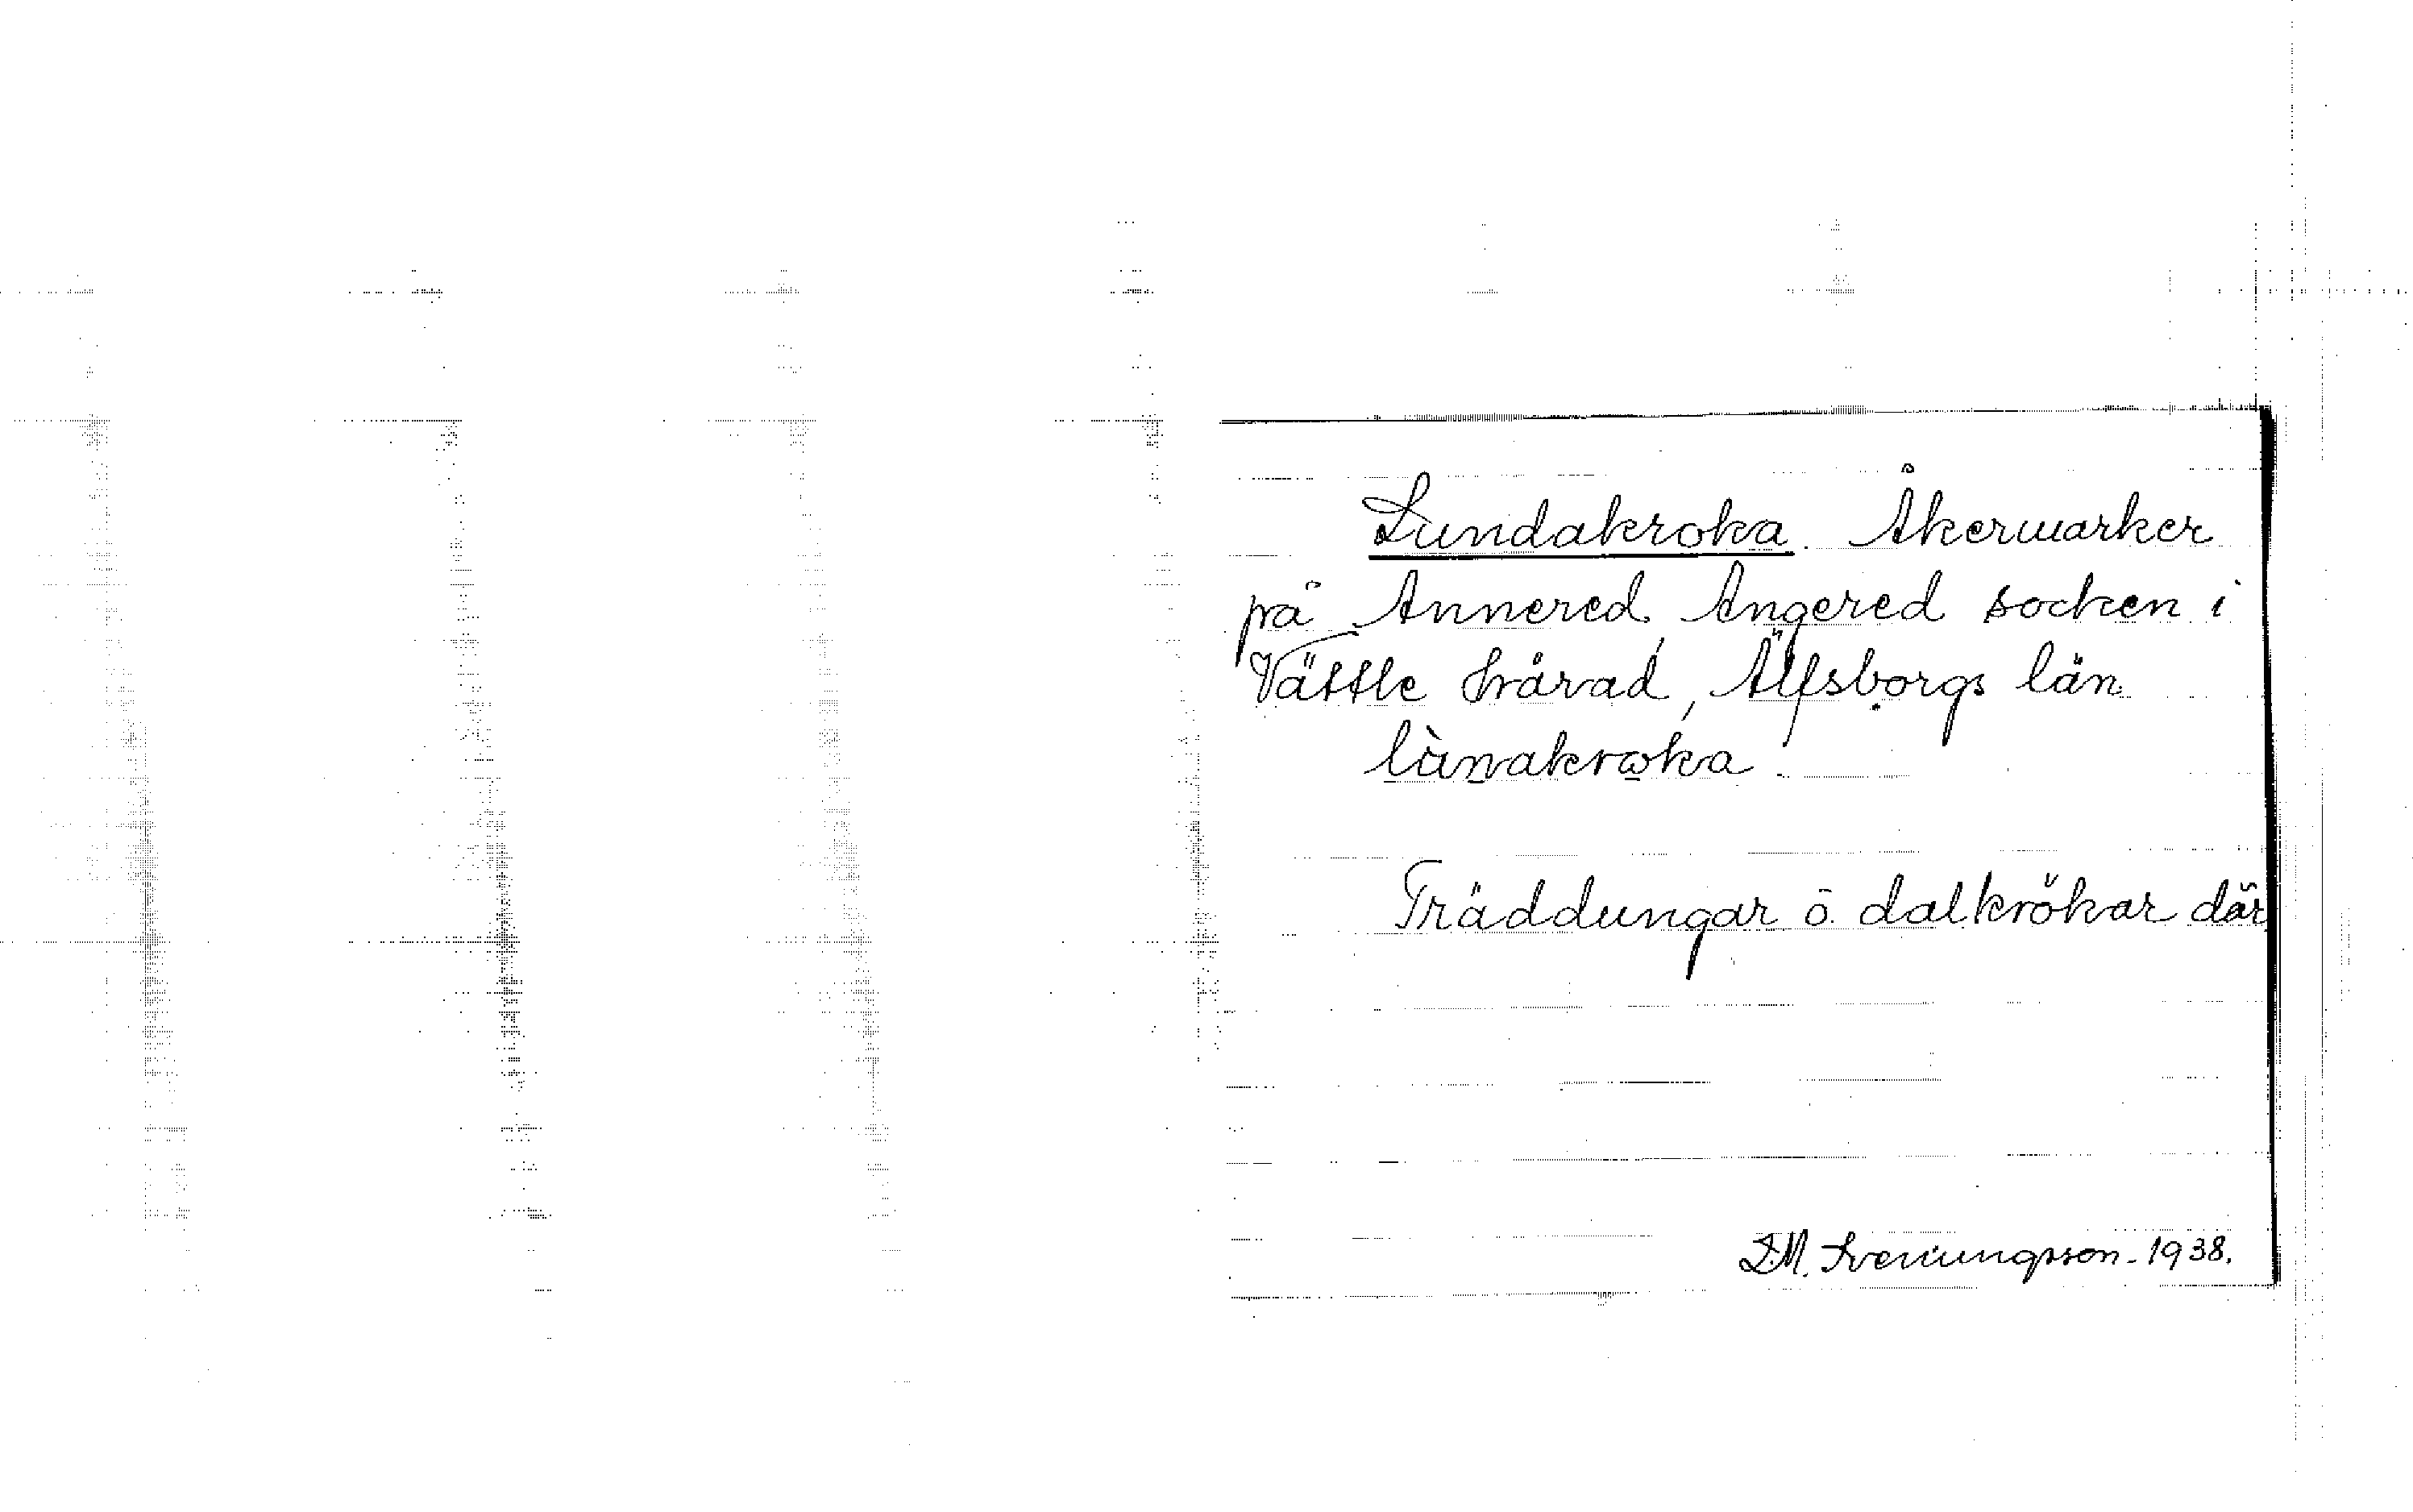 Lundakroka. Åkermarker
på Annered, Angered socken i
Vättle härad, Älfsborgs län
lùnakroka.
Träddungar o. dalkrökar där
D.M. Sveniungsson. 1938.